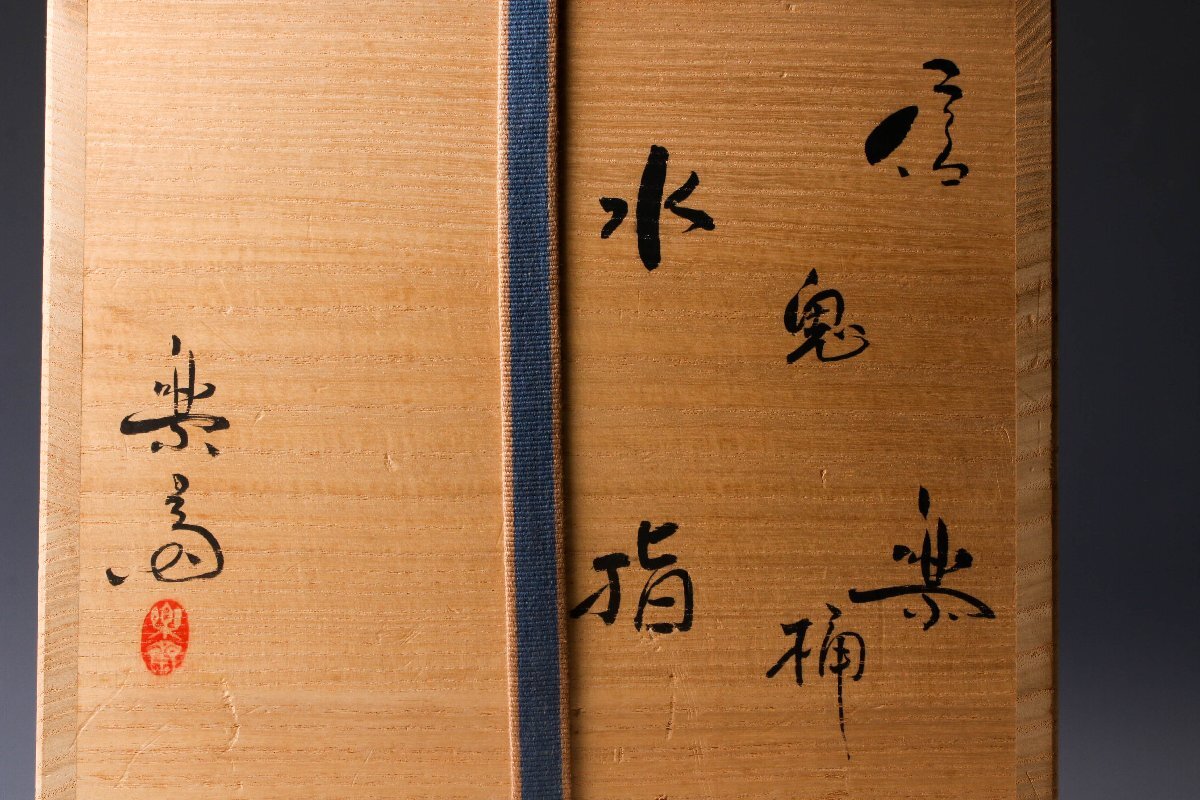 信楽
鬼桶
水指
楽斎